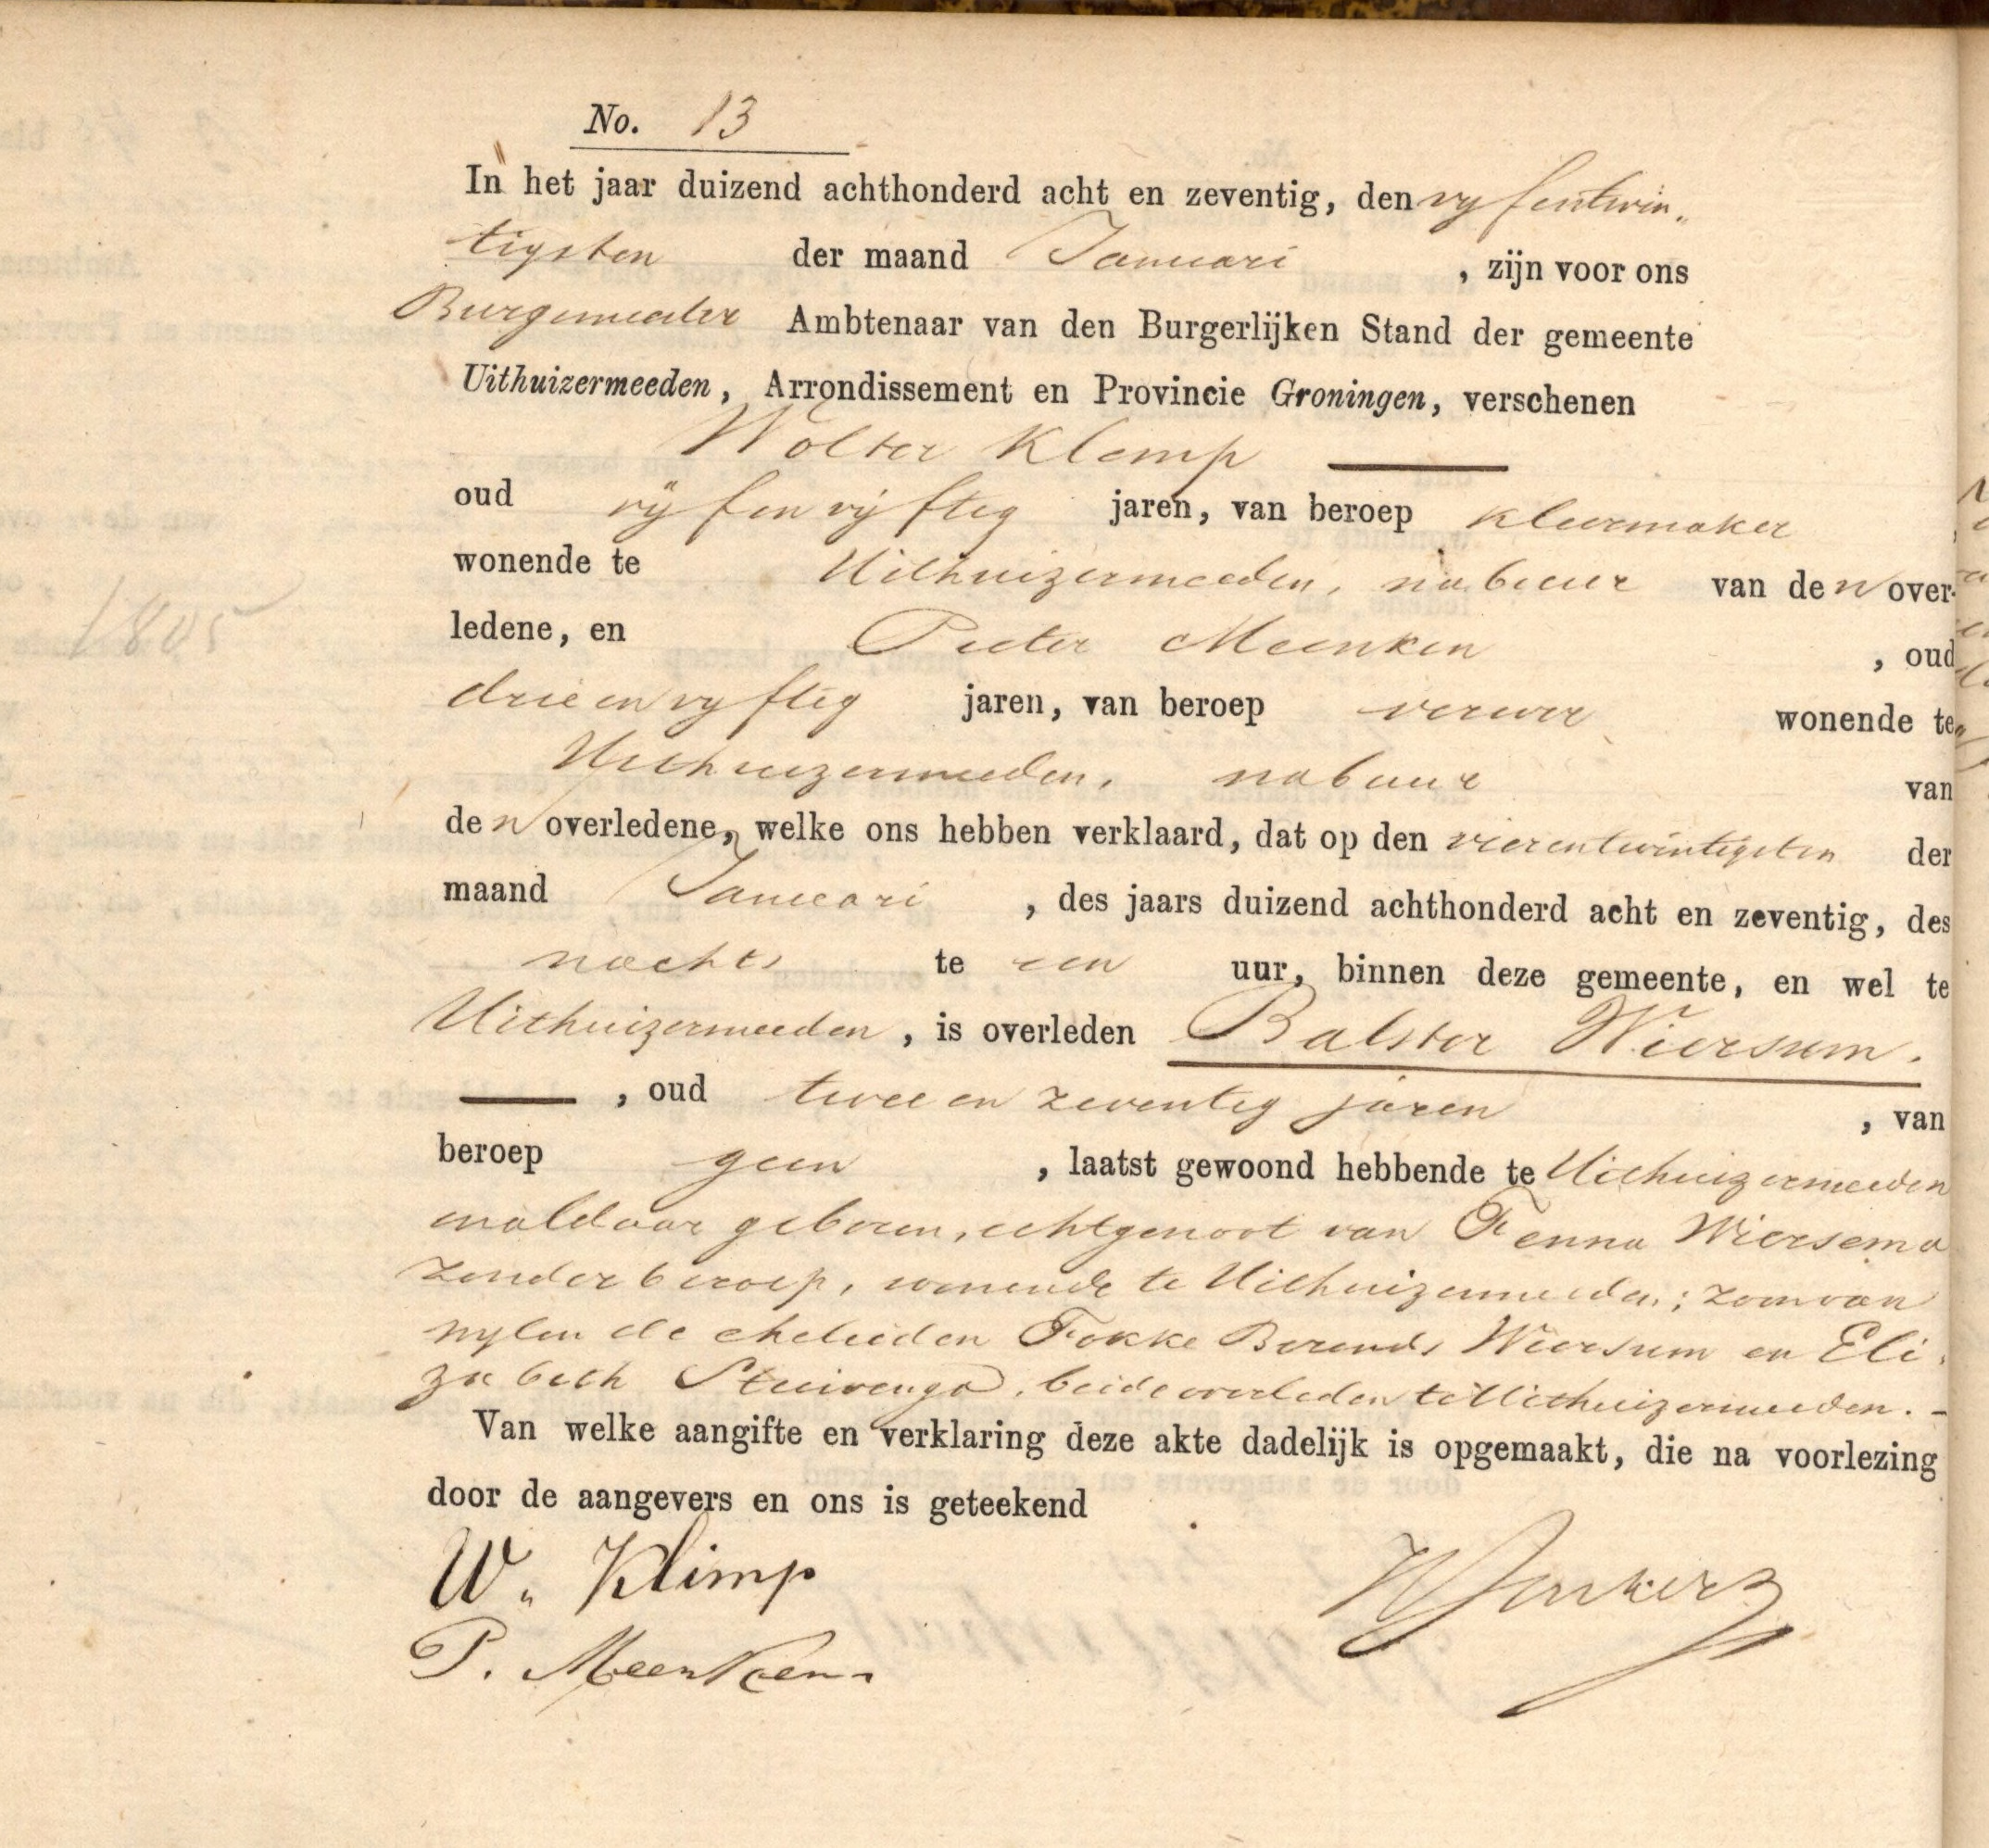 No. 13
In het jaar duizend achthonderd acht en zeventig, den vyfentwin„
tigsten der maand Januari , zijn voor ons
Burgemeester Ambtenaar van den Burgerlijken Stand der gemeente
Uithuizermeeden, Arrondissement en Provincie Groningen, verschenen
Wolter Klemp
oud vijfenvijftig jaren, van beroep kleermaker
wonende te Uithuizermeeden, nabuur van den over-
ledene, en Pieter Meenken , oud
drieenvyftig jaren, van beroep verwer wonende te
Uithuizermeeden, nabuur van
den overledene, welke ons hebben verklaard, dat op den vierentwintigsten der
maand Januari , des jaars duizend achthonderd acht en zeventig, des
nachts te een uur, binnen deze gemeente, en wel te
Uithuizermeeden , is overleden Balster Wiersum.
, oud twee en zeventig jaren , van
beroep geen , laatst gewoond hebbende te Uithuizermeeden
en aldaar geboren, echtgenoot van Fenna Wiersema
zonder beroep, wonende te Uithuizermeeden; zoon van
wylen de echelieden Fokke Berends Wiersum en Eli„
zabeth Stuivenga, beide overleden te Uithuizermeeden. -
Van welke aangifte en verklaring deze akte dadelijk is opgemaakt, die na voorlezing
door de aangevers en ons is geteekend
W. Klimp
P. Meenken.
1805